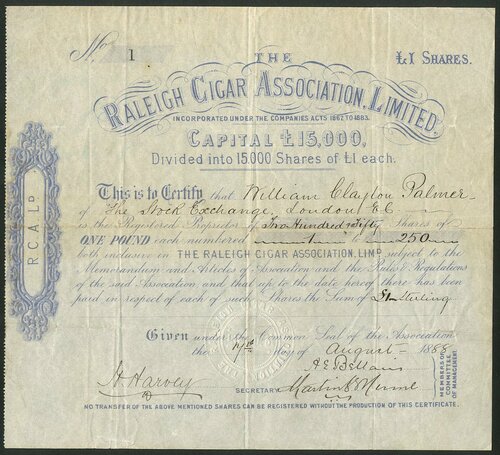 No. 1
THE
£1 SHARES.
RALEIGH CIGAR ASSOCIATION, LIMITED.
INCORPORATED UNDER THE COMPANIES ACTS 1862 TO 1883.
CAPITAL £15,000,
Divided into 15,000 Shares of £1 each.
This is to Certify that William Clayton Palmer
of The Stock Exchange, London E.C
is the Registered Proprietor of Two Hundred & Fifty Shares of
ONE POUND each numbered 1 250
both inclusive in THE RALEIGH CIGAR ASSOCIATION, LIMD. subject to the
Memorandum and Articles of Association and the Rules & Regulations
of the said Association and that up to the date hereof there has been
paid in respect of each of such Shares the Sum of £1 Sterling
Given under the Common Seal of the Association
the day of August 1888
H. Harvey
SECRETARY.
MEMBERS OF COMMITTEE OF MANAGEMENT
NO TRANSFER OF THE ABOVE MENTIONED SHARES CAN BE REGISTERED WITHOUT THE PRODUCTION OF THIS CERTIFICATE.
R C A LD